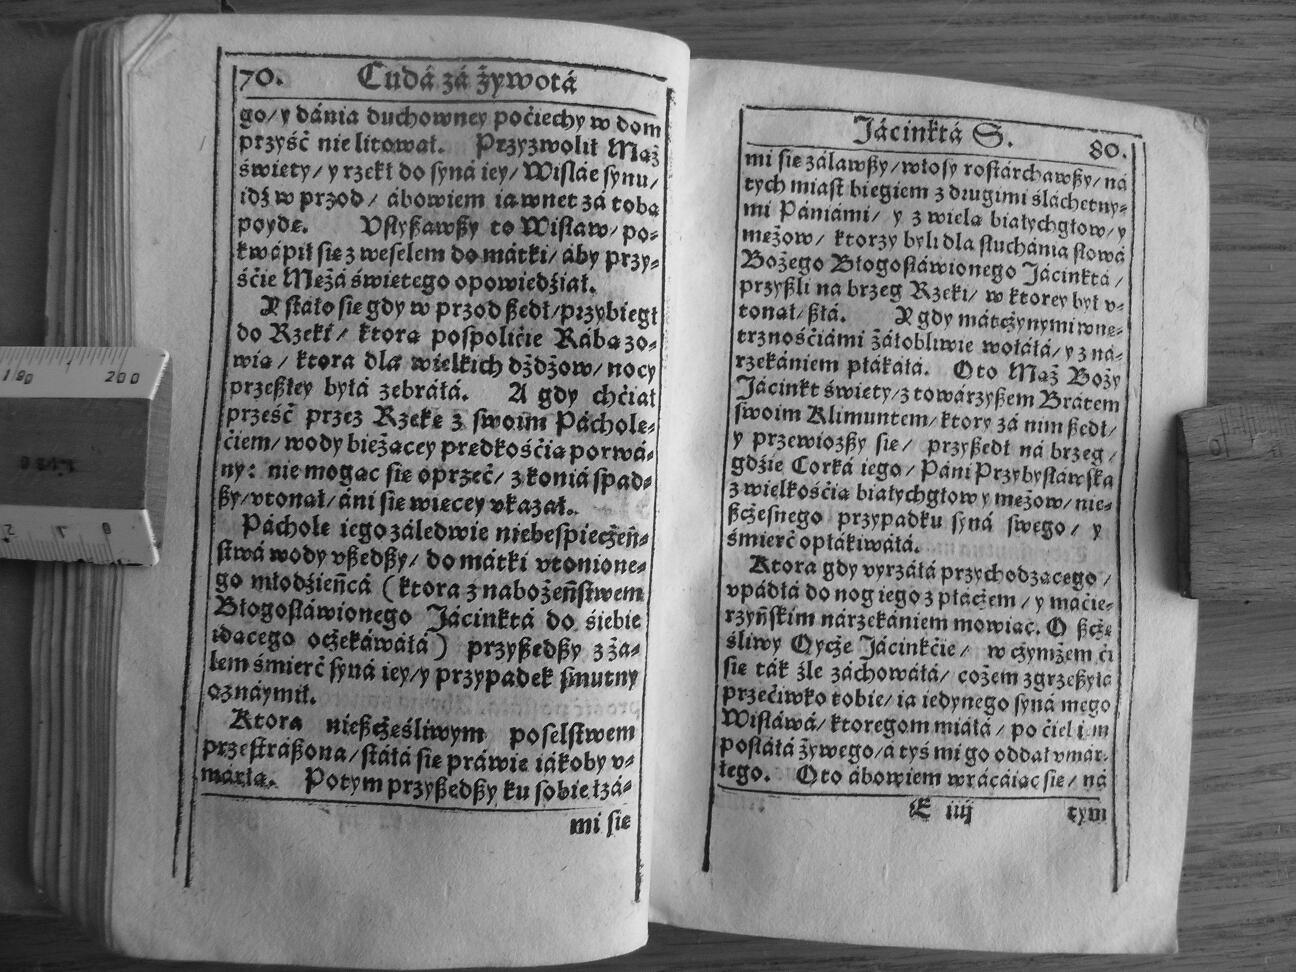 70. Cudá zá żywotá
go/ y dánia duchowney poćiechy w dom
przyść nie litował. Przyzwolił Mąż
święty/ y rzekł do syná iey/ Wisláe synu/
idź w przod/ ábowiem ia wnet zá tobą
poydę. Vsłyszawszy to Wisław/ po⸗
kwápił się z weselem do mátki/ áby przy⸗
śćie Mężá świętego opowiedźiał.
Y sstáło się gdy w przod szedł/ przybiegł
do Rzeki/ ktora pospolićie Rába zo⸗
wią/ ktora dla wielkich dżdżow/ nocy
przeszłey byłá zebráłá. A gdy chćiał
prześć przez Rzekę z swoim Pácholę⸗
ćiem/ wody bieżącey prędkośćią porwá⸗
ny: nie mogąc się oprzeć/ z koniá spad⸗
szy/ vtonął/ áni się więcey vkazał.
Páchole iego záledwie niebespieczeń⸗
stwá wody vszedszy/ do mátki vtonione⸗
go młodźieńcá (ktora z nabożeństwem
Błogosłáwionego Jácinktá do śiebie
idącego oczekáwáłá) przyszedszy z ża⸗
lem śmierć syná iey/ y przypadek smutny
oznáymił.
Ktora nieszczęśliwym poselstwem
przestrászona/ sstáłá się práwie iákoby v⸗
márła. Potym przyszedszy ku sobie łzá⸗
mi się
Jácinktá S. 80.
mi się zálawszy/ włosy rostárchawszy/ ná
tych miast biegiem z drugimi śláchetny⸗
mi Pániámi/ y z wielą białychgłow/ y
mężow/ ktorzy byli dla słuchánia słowá
Bożego Błogosłáwionego Jácinktá/
przyszli ná brzeg Rzeki/ w ktorey był v⸗
tonął/ szłá. Y gdy mátczynymi wnę⸗
trznośćiámi żáłobliwie wołáłá/ y z ná⸗
rzekániem płákáłá. Oto Mąż Boży
Jácinkt święty/ z towárzyszem Brátem
swoim Klimuntem/ ktory zá nim szedł/
y przewiozszy się/ przyszedł ná brzeg/
gdźie Corká iego/ Páni Przybysłáwska
z wielkośćią białychgłow y mężow/ nie⸗
szczęsnego przypadku syná swego/ y
śmierć opłákiwáłá.
Ktora gdy vyrzáłá przychodzącego/
vpádłá do nog iego z płáczem/ y máćie⸗
rzyńskim nárzekániem mowiąc. O szczę
śliwy Oycze Jácinkćie/ w czymżem ći
się ták źle záchowáłá/ cożem zgrzeszyłá
przećiwko tobie/ ia iedynego syná mego
Wisłáwá/ ktoregom miáłá/ po ćię
posłáłá żywego/ á tyś mi go oddał vmár⸗
łego. Oto ábowiem wrácáiąc się/ ná
E iiij tym